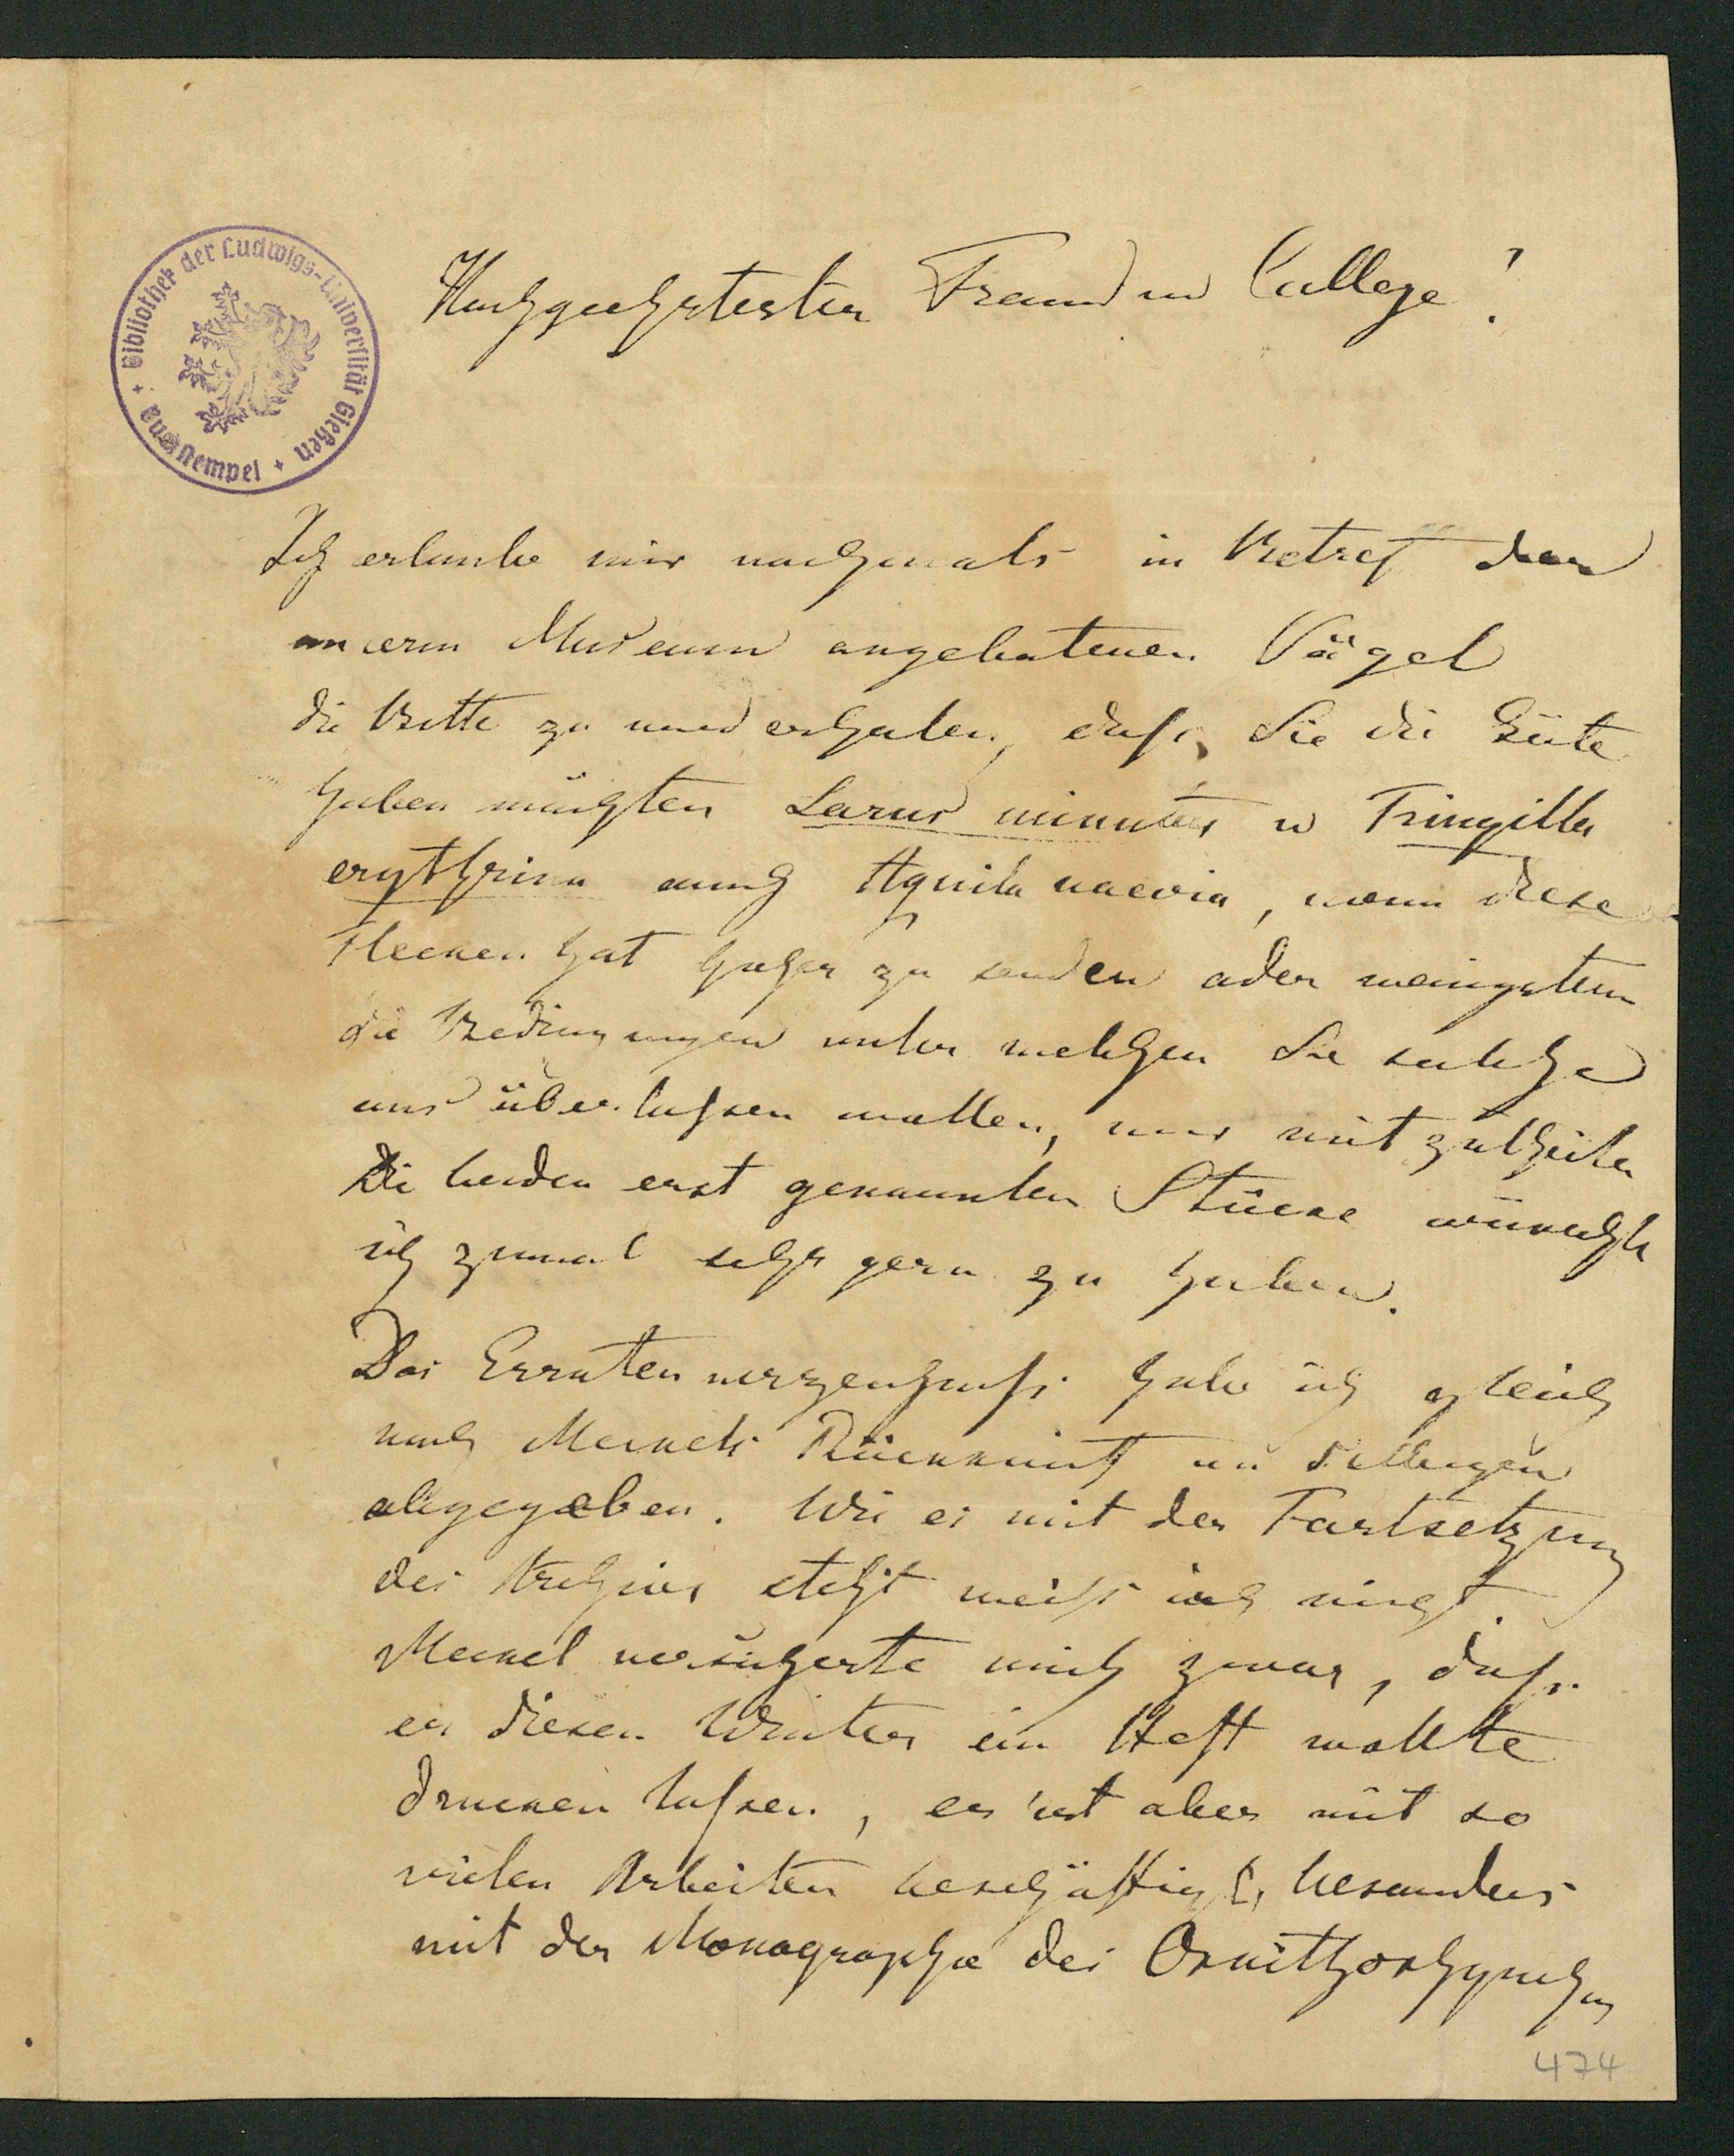 Bibliothek der Ludwigs-Universität Gießen
Buchstempel
Hochgeehrtester Freund u College!
Ich erlaube mir nochmals in Betreff der
unserm Museum angebotenen Vögel
die Bitte zu wiederholen, daß Sie die Güte
haben möchten Larus minutus u Fringilla
erythrina auch Aquila naevia, wenn diese
Flecken hat hieher zu senden oder wenigstens
die Bedingungen unter welchen Sie solche
uns überlassen wollen, uns mitzutheilen
Die beiden erst genannten Stücke wünschte
ich zumal sehr gern zu haben.
Das Erratenverzeichniß habe ich gleich
nach Meckels Rückkunft an
abgegeben. Wie es mit der Fortsetzung
des Archivs steht weiß ich nicht
Meckel versicherte mich zwar, daß
er diesen Winter ein Heft wollte
drucken lassen, er ist aber mit so
vielen Arbeiten beschäftigt, besonders
mit der Monographie des Ornithorhynchus
474